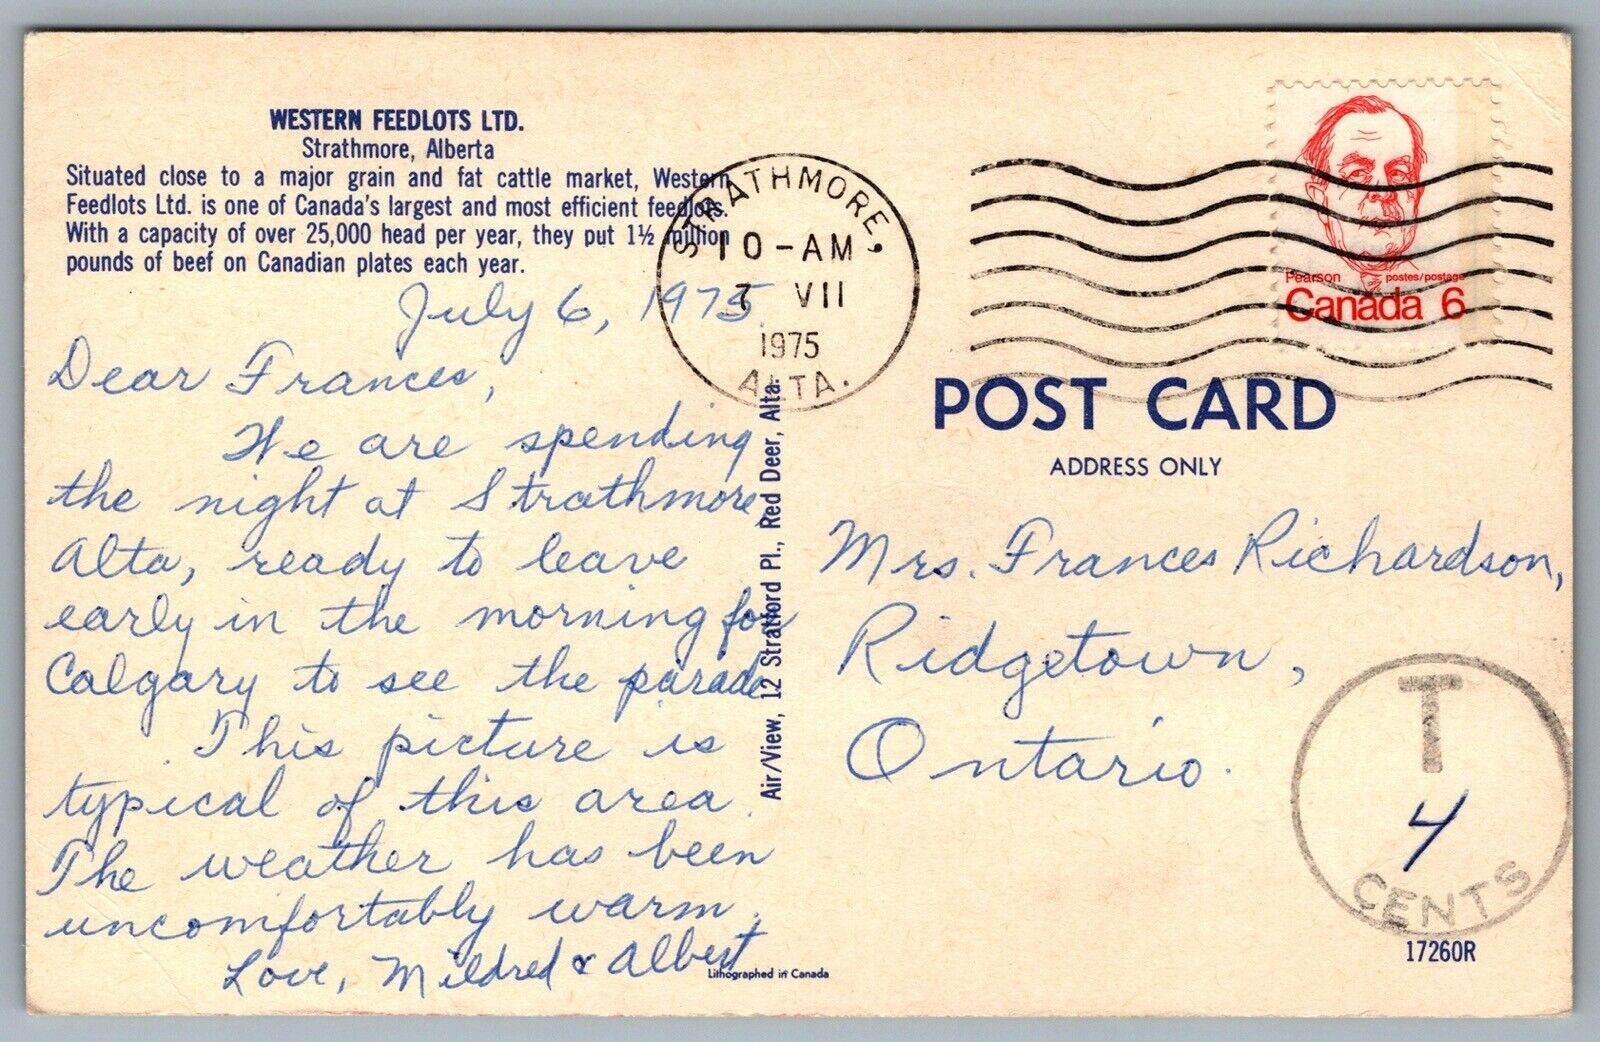 WESTERN FEEDLOTS LTD.
Strathmore, Alberta
Situated close to a major grain and fat cattle market, Western
Feedlots Ltd. is one of Canada's largest and most efficient feedlots.
With a capacity of over 25,000 head per year, they put 1½ million
pounds of beef on Canadian plates each year.
July 6, 1975.
Dear Frances,
We are spending
the night at Strathmore
Alta, ready to leave
early in the morning for
Calgary to see the parade
This picture is
typical of this area.
The weather has been
uncomfortably warm.
Love, Mildred & Albert
Air/View, 12 Stratford Pl., Red Deer, Alta.
Lithographed in Canada
STRATHMORE,
10-AM
7 VII
1975
ALTA.
Pearson postes/postage
Canada 6
POST CARD
ADDRESS ONLY
Mrs. Frances Richardson,
Ridgetown,
Ontario.
T
4
CENTS
17260R